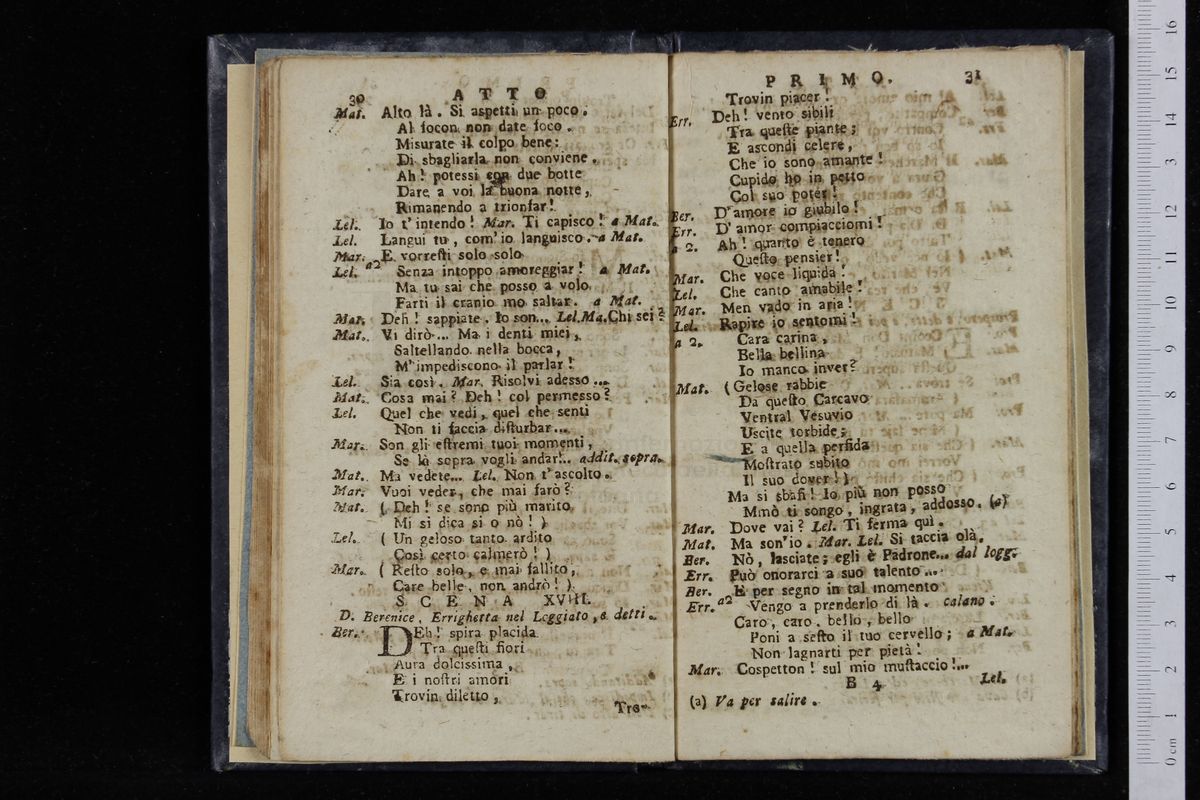 30 ATTO
Mat. Alto là. Si aspetti un poco.
Al focon non date foco.
Misurate il colpo bene:
Di sbagliarla non conviene.
Ah! potessi con due botte
Dare a voi la buona notte,
Rimanendo a trionfar!
Lel. Io t'intendo! Mar. Ti capisco! a Mat.
Lel. Langui tu, com'io languisco. a Mat.
Mar. E vorresti solo solo
Lel. a2 Senza intoppo amoreggiar! a Mat.
Ma tu sai che posso a volo
Farti il cranio mo saltar. a Mat.
Mat. Deh! sappiate. Io son... Lel.Ma.Chi sei?
Mat. Vi dirò... Ma i denti miei,
Saltellando nella bocca,
M'impediscono il parlar!
Lel. Sia così. Mar. Risolvi adesso...
Mat. Cosa mai? Deh! col permesso?
Lel. Quel che vedi, quel che senti
Non ti faccia disturbar...
Mar. Son gli estremi tuoi momenti,
Se là sopra vogli andar!.. addit. sopra.
Mat. Ma vedete... Lel. Non t'ascolto.
Mar. Vuoi veder, che mai farò?
Mat. ( Deh! se sono più marito
Mi si dica si o nò! )
Lel. ( Un geloso tanto ardito
Così certo calmerò! )
Mar. ( Resto solo, e mai fallito,
Care belle, non andrò! )
SCENA XVIII.
D. Berenice, Errighetta nel Loggiato, e detti.
Ber. DEh! spira placida
Tra questi fiori
Aura dolcissima,
E i nostri amori
Trovin diletto,
Tro-
PRIMO. 31
Trovin piacer!
Err. Deh! vento sibili
Tra queste piante;
E ascondi celere,
Che io sono amante!
Cupido ho in petto
Col suo poter!
Ber. D'amore io giubilo!
Err. D'amor compiacciomi!
a 2. Ah! quanto è tenero
Questo pensier!
Mar. Che voce liquida!
Lel. Che canto amabile!
Mar. Men vado in aria!
Lel. Rapire io sentomi!
a 2. Cara carina,
Bella bellina
Io manco inver?
Mat. (Gelose rabbie
Da questo Carcavo
Ventral Vesuvio
Uscite torbide;
E a quella perfida
Mostrato subito
Il suo dover!)
Ma si sbafi! Io più non posso
Mmò ti songo, ingrata, addosso. (a)
Mar. Dove vai? Lel. Ti ferma quì.
Mat. Ma son'io. Mar. Lel. Si taccia olà.
Ber. Nò, lasciate; egli è Padrone... dal logg.
Err. Può onorarci a suo talento...
Ber. E per segno in tal momento
Err. a2 Vengo a prenderlo di là. calano.
Caro, caro, bello, bello
Poni a sesto il tuo cervello; a Mat.
Non lagnarti per pietà!
Mar. Cospetton! sul mio mustaccio!...
B 4 Lel.
(a) Va per salire.
16
15
14
13
12
11
10
9
8
7
6
5
4
3
2
1
0 cm